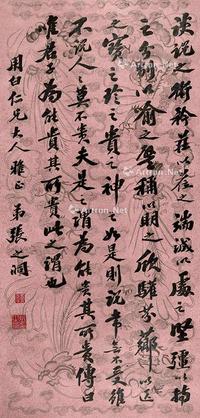 談說之術矜莊以莅之端誠以處之堅彊以持
之分別以喻之譬稱以明之欣驩芬薌以送
之寶之珍之貴之神之如是則說常無不受雖
不說人人莫不貴夫是之謂為能貴其所貴傳曰
唯君子為能貴其所貴此之謂也
用白仁兄大人雅正 弟張之洞
Artron.Net